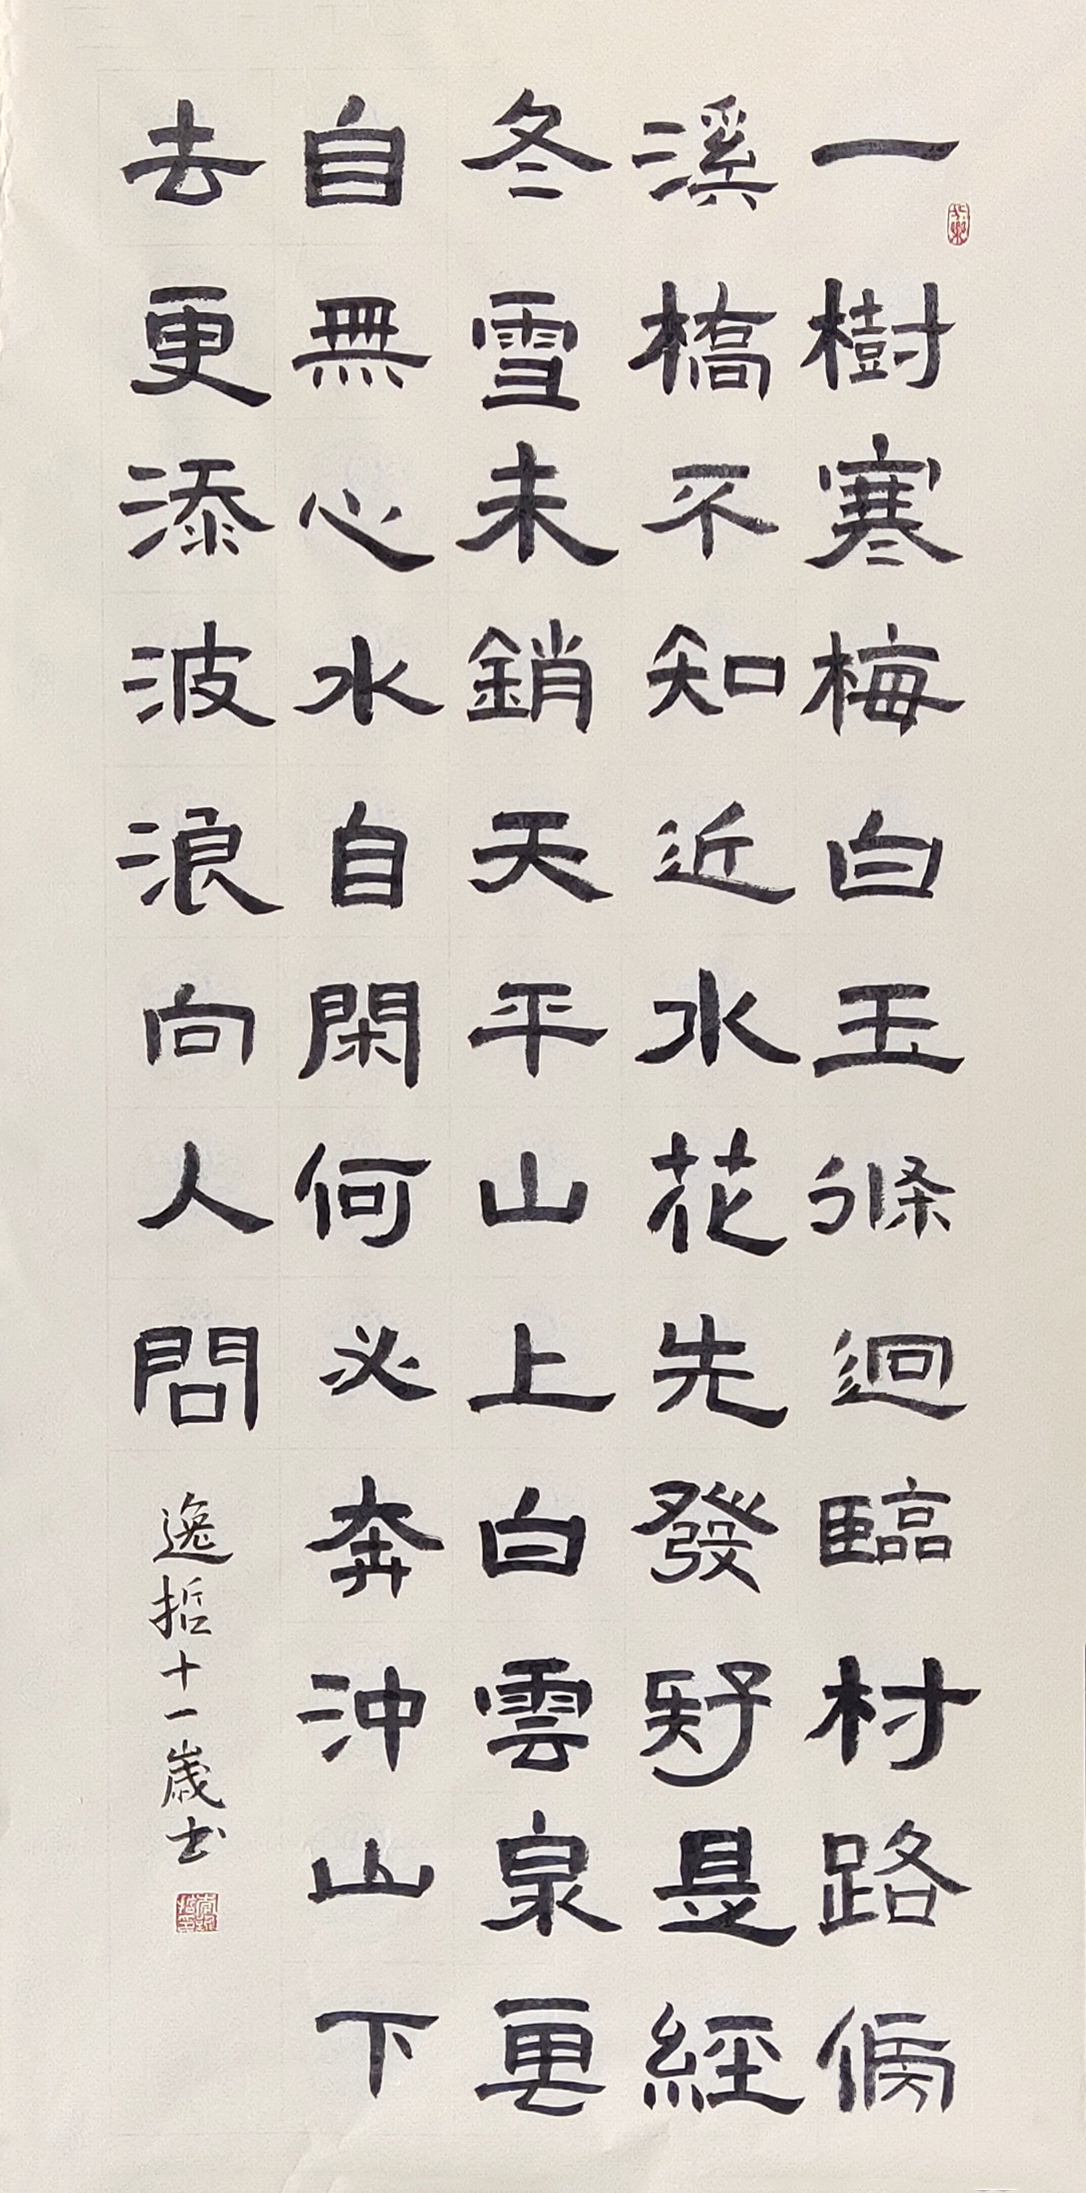 一樹寒梅白玉條迥臨村路傍
溪橋不知近水花先發疑是經
冬雪未銷天平山上白雲泉
自無心水自閑何必奔沖山下
去更添波浪向人問
逸哲十一歲书